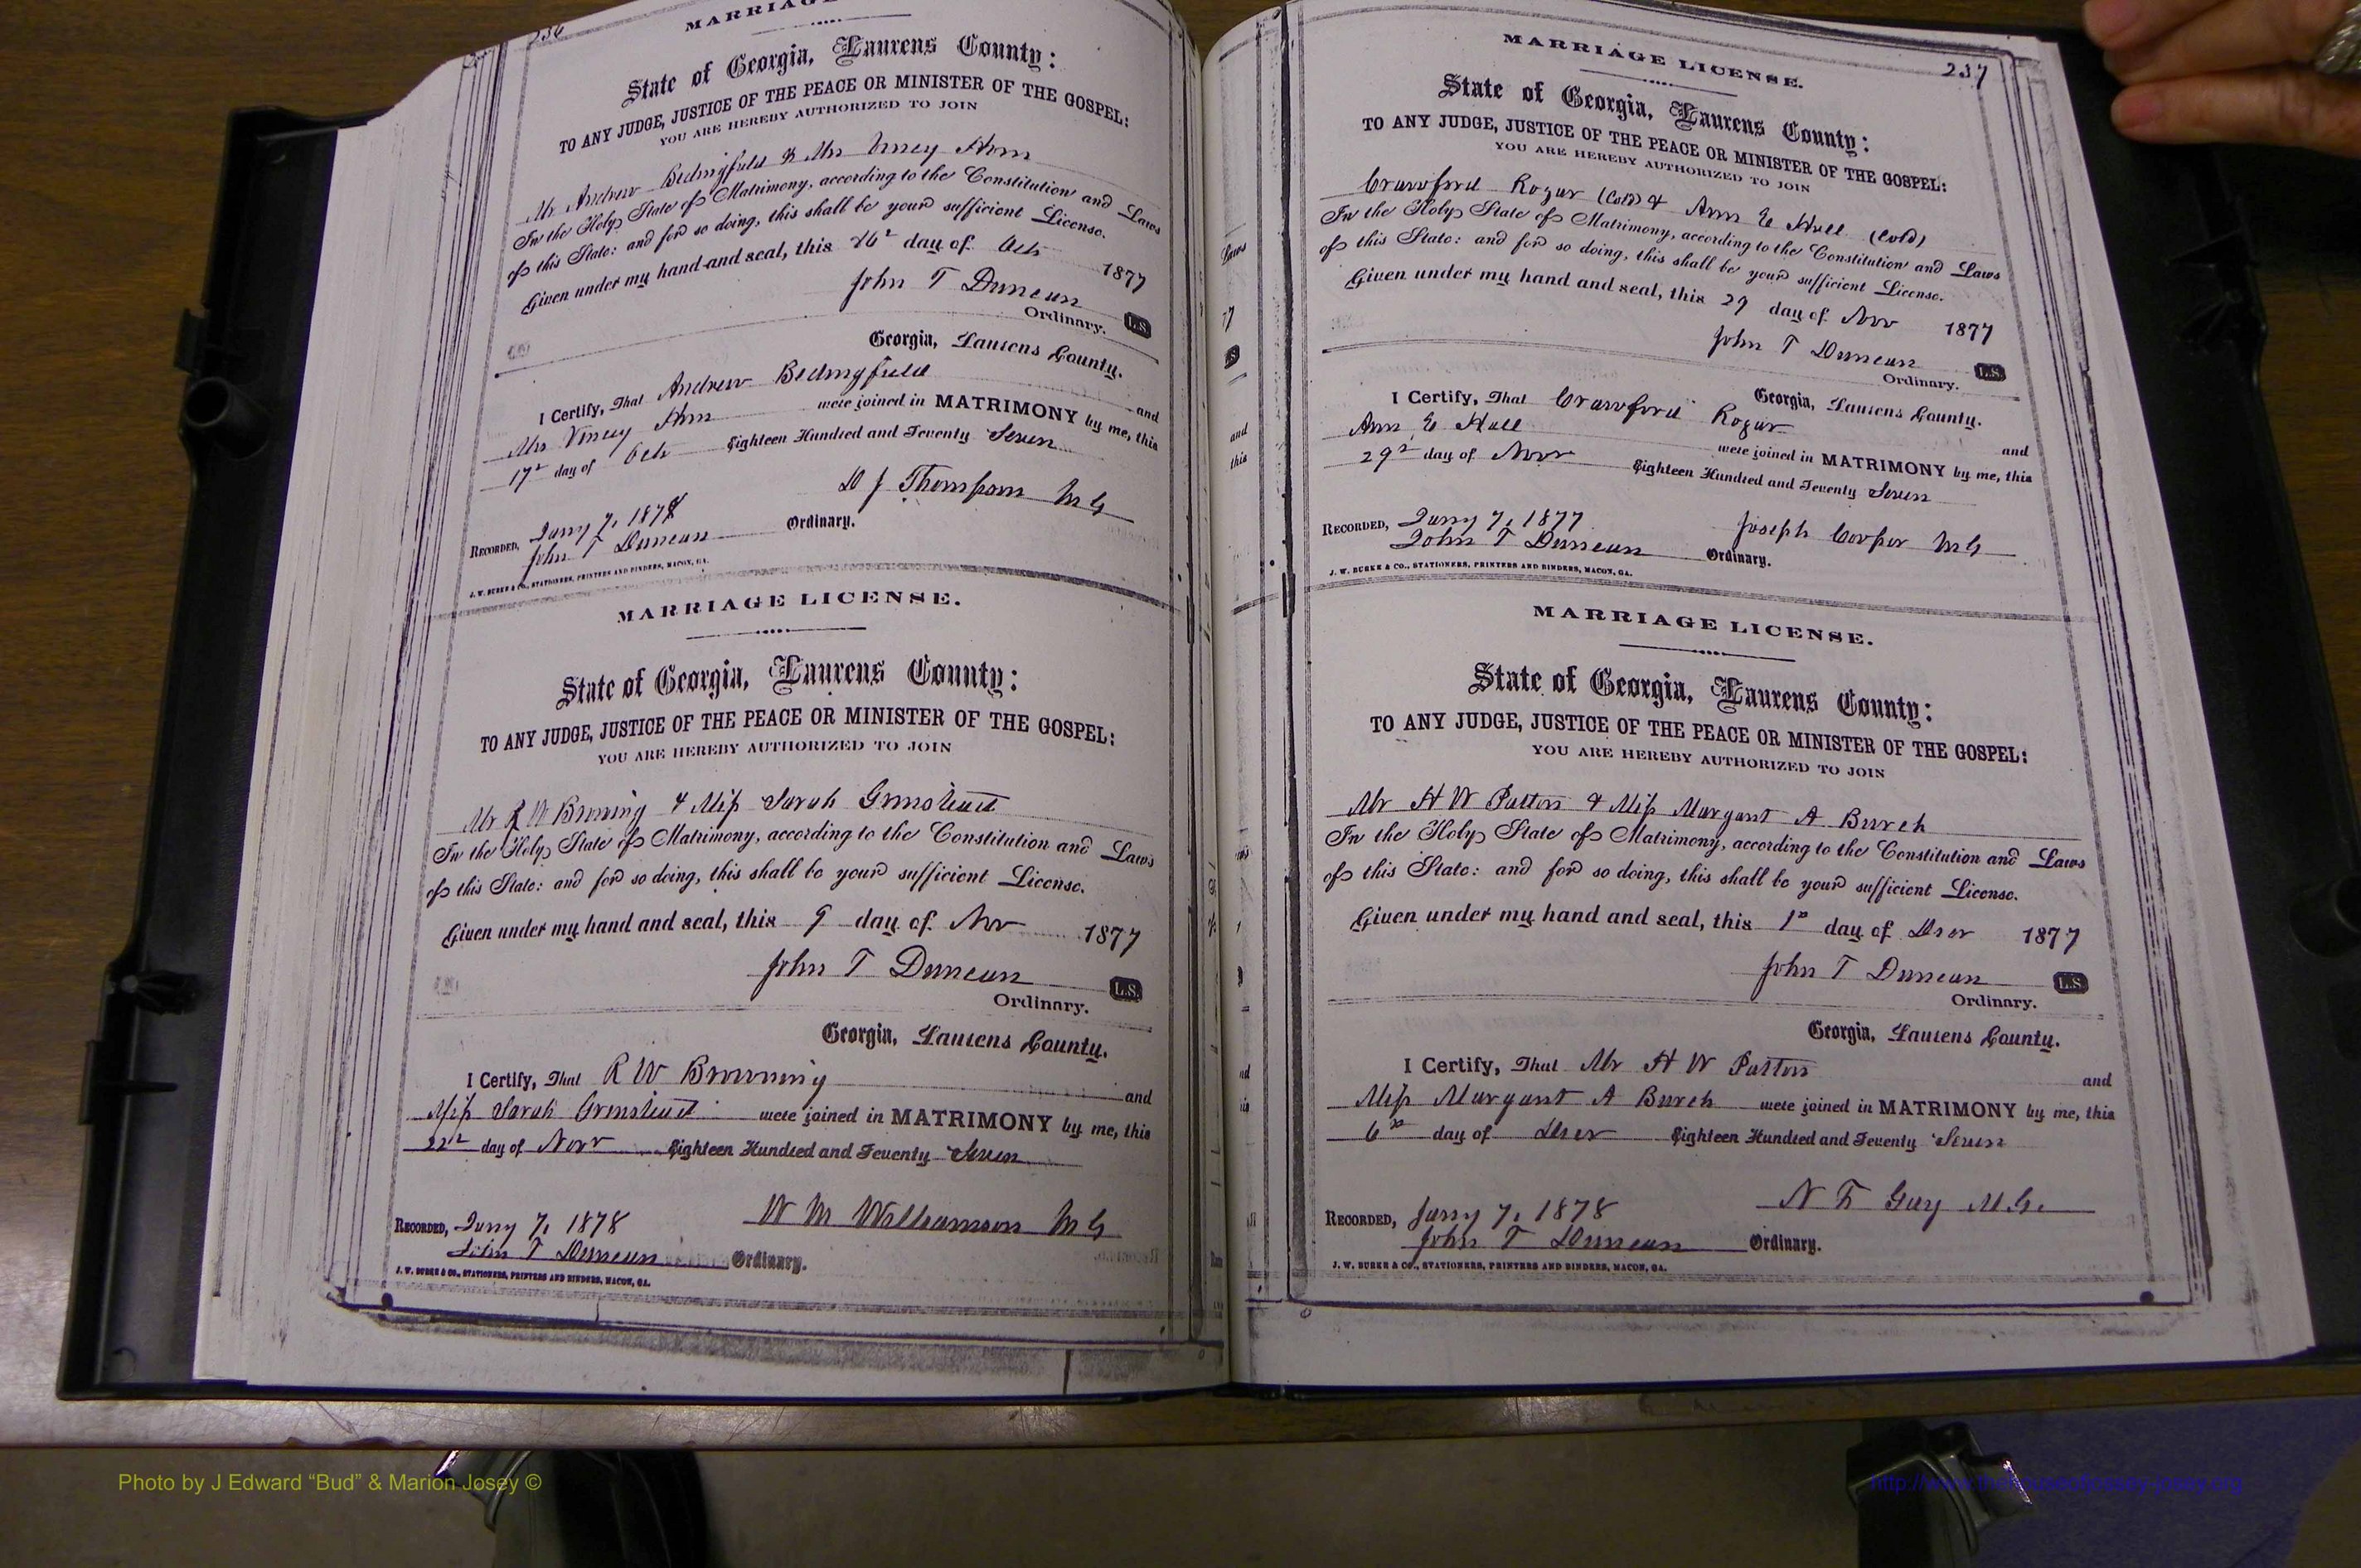 236
MARRIAGE
State of Georgia, Laurens County:
TO ANY JUDGE, JUSTICE OF THE PEACE OR MINISTER OF THE GOSPEL:
YOU ARE HEREBY AUTHORIZED TO JOIN
Mr Andrew Bedingfield & Mrs Viney
In the Holy State of Matrimony, according to the Constitution and Laws
of this State: and for so doing, this shall be your sufficient License.
Given under my hand and seal, this 16 day of Oct 1877
John T Duncan
Ordinary. L.S.
Georgia, Laurens County.
I Certify, That Andrew Bedingfield and
Mrs Viney were joined in MATRIMONY by me, this
17 day of Oct Eighteen Hundred and Seventy Seven
D J Thompson M G
RECORDED, Jany 7, 1878
John T Duncan Ordinary.
J. W. BURKE & CO., STATIONERS, PRINTERS AND BINDERS, MACON, GA.
MARRIAGE LICENSE.
State of Georgia, Laurens County:
TO ANY JUDGE, JUSTICE OF THE PEACE OR MINISTER OF THE GOSPEL:
YOU ARE HEREBY AUTHORIZED TO JOIN
Mr R W Browning & Miss Sarah Grinstead
In the Holy State of Matrimony, according to the Constitution and Laws
of this State: and for so doing, this shall be your sufficient License.
Given under my hand and seal, this 9 day of Nov 1877
John T Duncan
Ordinary. L.S.
Georgia, Laurens County.
I Certify, That R W Browning and
Miss Sarah Grinstead were joined in MATRIMONY by me, this
22 day of Novr Eighteen Hundred and Seventy Seven
W M Williamson M G
RECORDED, Jany 7, 1878
John T Duncan Ordinary.
J. W. BURKE & CO., STATIONERS, PRINTERS AND BINDERS, MACON, GA.
237
MARRIAGE LICENSE.
State of Georgia, Laurens County:
TO ANY JUDGE, JUSTICE OF THE PEACE OR MINISTER OF THE GOSPEL:
YOU ARE HEREBY AUTHORIZED TO JOIN
Crawford Rozar (Cold) & Ann E Hall (Cold)
In the Holy State of Matrimony, according to the Constitution and Laws
of this State: and for so doing, this shall be your sufficient License.
Given under my hand and seal, this 29 day of Nov 1877
John T Duncan
Ordinary. L.S.
Georgia, Laurens County.
I Certify, That Crawford Rozar and
Ann E Hall were joined in MATRIMONY by me, this
29 day of Novr Eighteen Hundred and Seventy Seven
Joseph Cooper M G
RECORDED, Jany 7, 1877
John T Duncan Ordinary.
J. W. BURKE & CO., STATIONERS, PRINTERS AND BINDERS, MACON, GA.
MARRIAGE LICENSE.
State of Georgia, Laurens County:
TO ANY JUDGE, JUSTICE OF THE PEACE OR MINISTER OF THE GOSPEL:
YOU ARE HEREBY AUTHORIZED TO JOIN
Mr H W Patton & Miss Margaret A Burch
In the Holy State of Matrimony, according to the Constitution and Laws
of this State: and for so doing, this shall be your sufficient License.
Given under my hand and seal, this 1st day of Decr 1877
John T Duncan
Ordinary. L.S.
Georgia, Laurens County.
I Certify, That Mr H W Patton and
Miss Margaret A Burch were joined in MATRIMONY by me, this
6th day of Decr Eighteen Hundred and Seventy Seven
Gay M.G.
RECORDED, Jany 7, 1878
John T Duncan Ordinary.
J. W. BURKE & CO., STATIONERS, PRINTERS AND BINDERS, MACON, GA.
Photo by J Edward “Bud” & Marion Josey ©
http://www.thehouseofjossey-josey.org